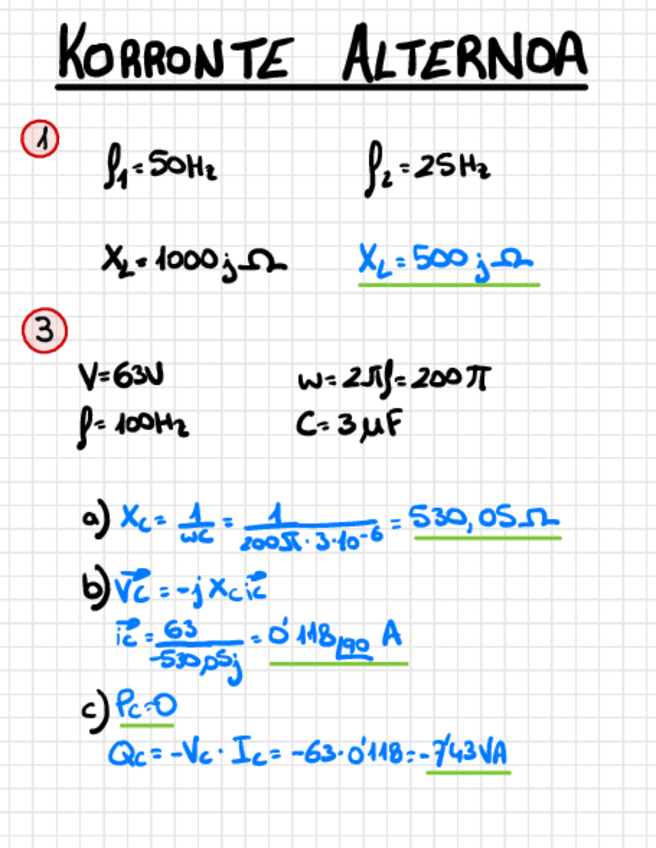 KORRONTE ALTERNOA
1
f₁=50Hz f₂=25Hz
X_L=1000jΩ X_L=500jΩ
3
V=63V w=2πf=200π
f=100Hz C=3μF
a) X_C= 1/wC = 1/200π·3·10⁻⁶ = 530,05Ω
b) V⃗c=-jXc i⃗c
i⃗c= 63/-530,05j = 0'118∠90 A
c) Pc=0
Qc=-Vc·Ic=-63·0'118=-7'43VA